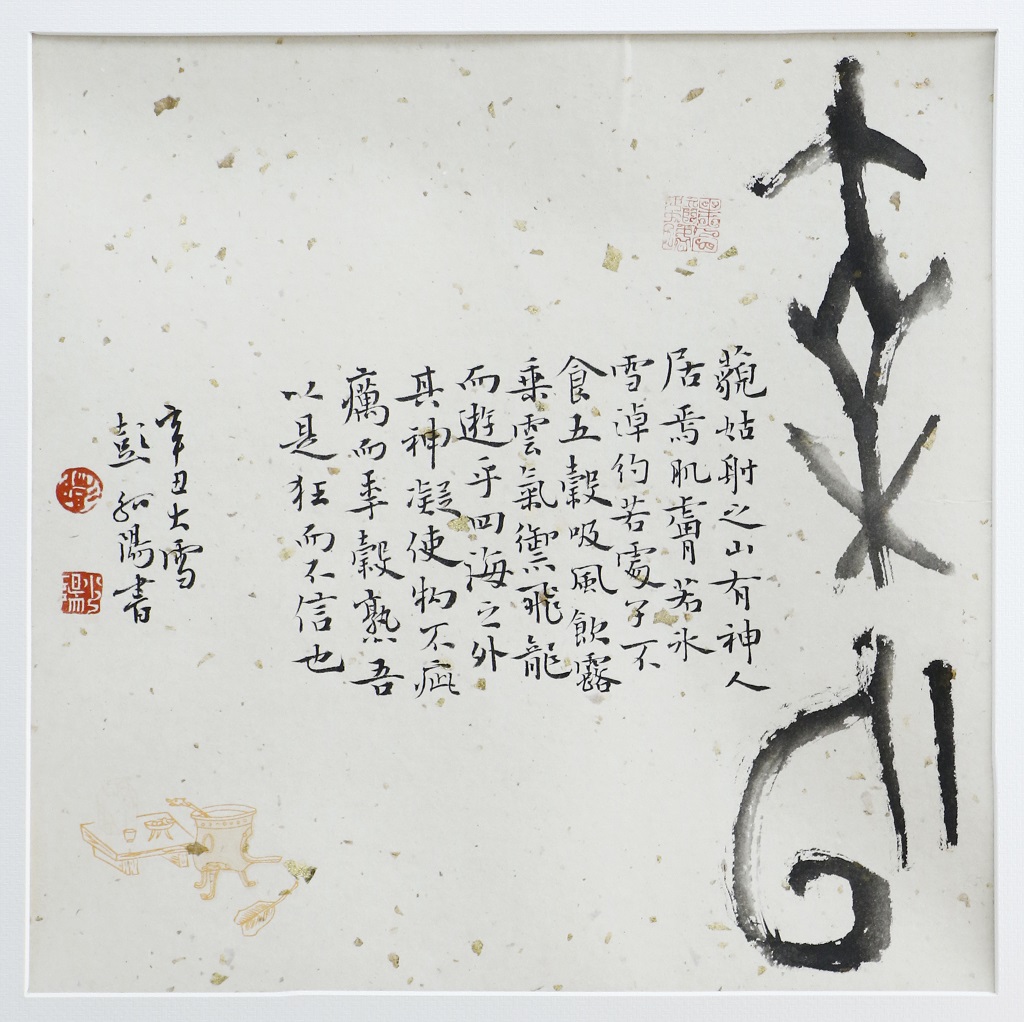 藐姑射之山有神人
居焉肌膚若氷
雪淖約若處子不
食五穀吸風飲露
乘雲氣御飛龍
而遊乎四海之外
其神凝使物不疵
癘而年穀熟吾
以是狂而不信也
辛丑大雪
彭陽書